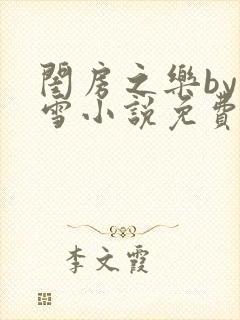 閨房之樂by
雪小說免費
李文霞